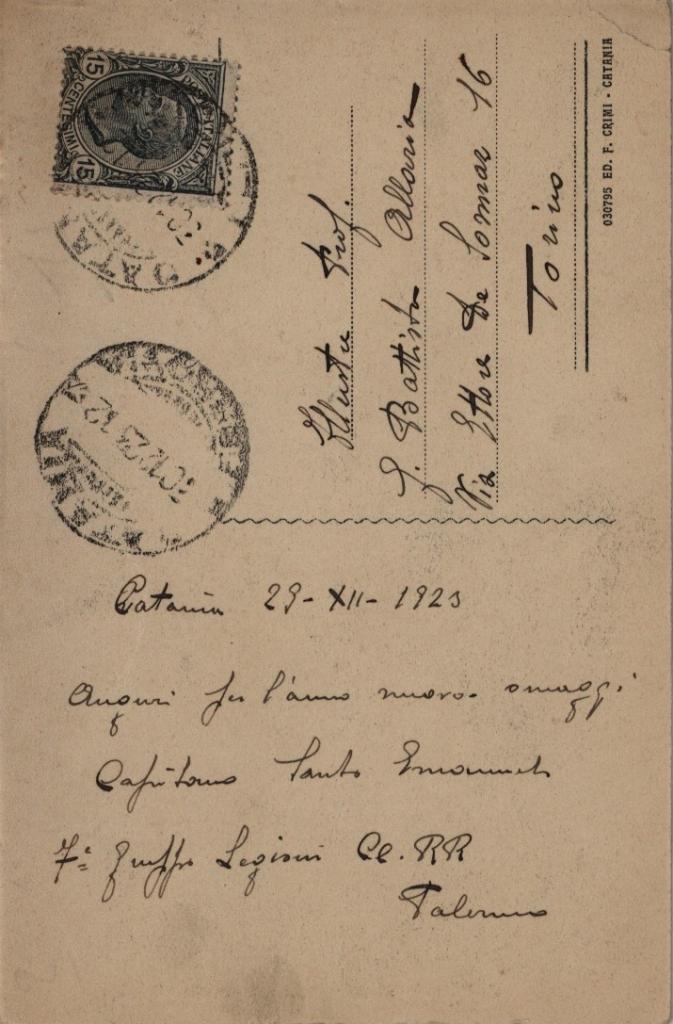 Catania 29-XII-1923
Auguri per l'anno nuovo. omaggi
Capitano Santo Emanuele
7º gruppo Legioni CC.RR
Palermo
Illustre Prof.
G. Battista Allaria
Via Ettore De Sonnaz 16
Torino
030795 ED. F. CRIMI - CATANIA
POSTE ITALIANE
CENTESIMI
15 15
CATANIA
30.12.23